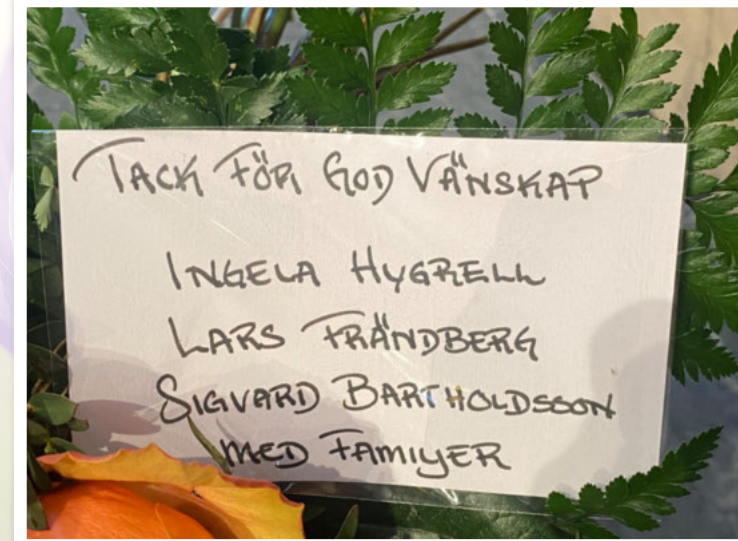 TACK FÖR GOD VÄNSKAP
INGELA HYGRELL
LARS FRÄNDBERG
SIGVARD BARTHOLDSSON
MED FAMIYER